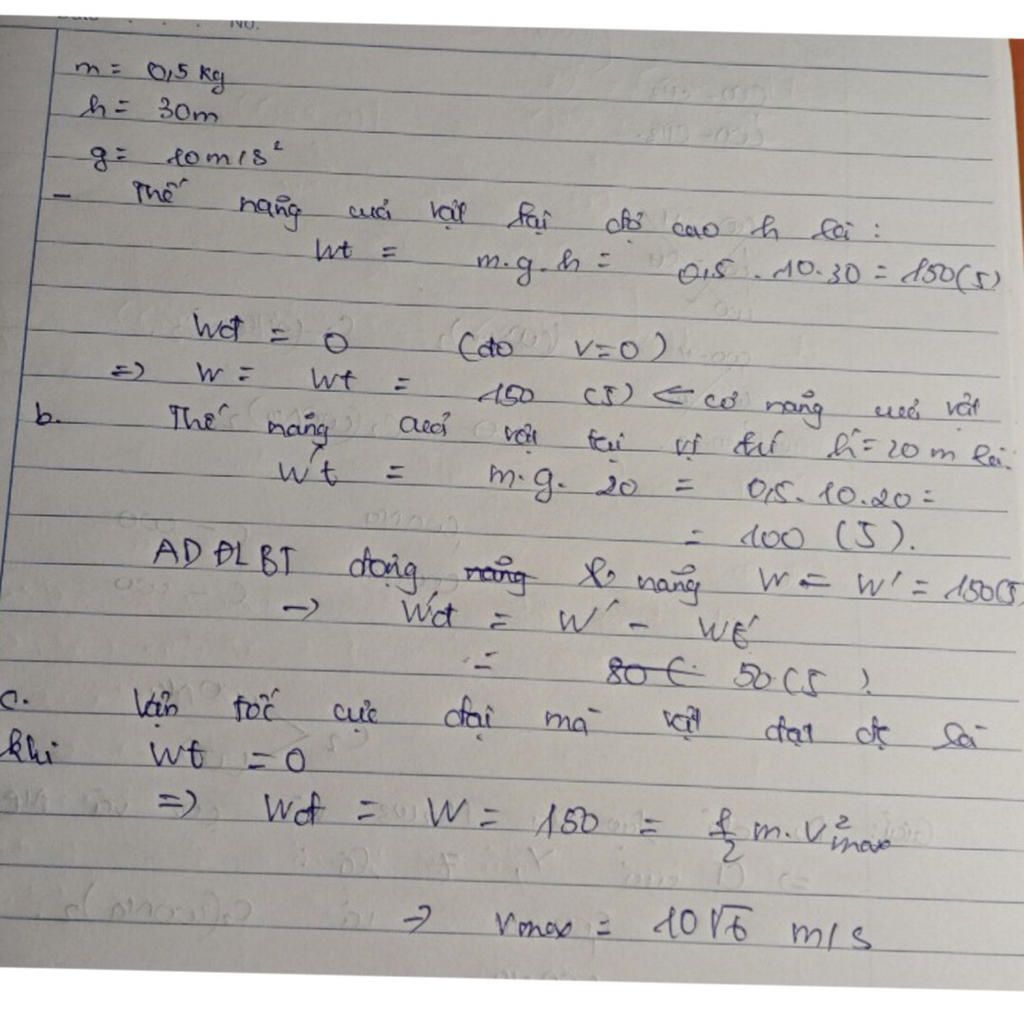 No.
m = 0,5 kg
h = 30m
g = 10m/s²
- Thế năng cuả vật tại độ cao h là :
Wt = m.g.h = 0,5 . 10.30 = 150 (J)
Wđ = 0 (do v=0)
=> W = Wt = 150 (J) <= cơ năng cuả vật
b. Thế năng cuả vật tại vị trí h' = 20 m là.
W't = m.g. 20 = 0,5. 10.20 =
= 100 (J).
AD ĐLBT động năng năng W = W' = 150(J)
-> W'đ = W' - Wt'
= 80 ( 50 (J)
c. Vận tốc cực đại mà vật đạt đc là
khi Wt = 0
=> Wđ = W = 150 = 1/2 m. v²max
-> vmax = 10√6 m/s